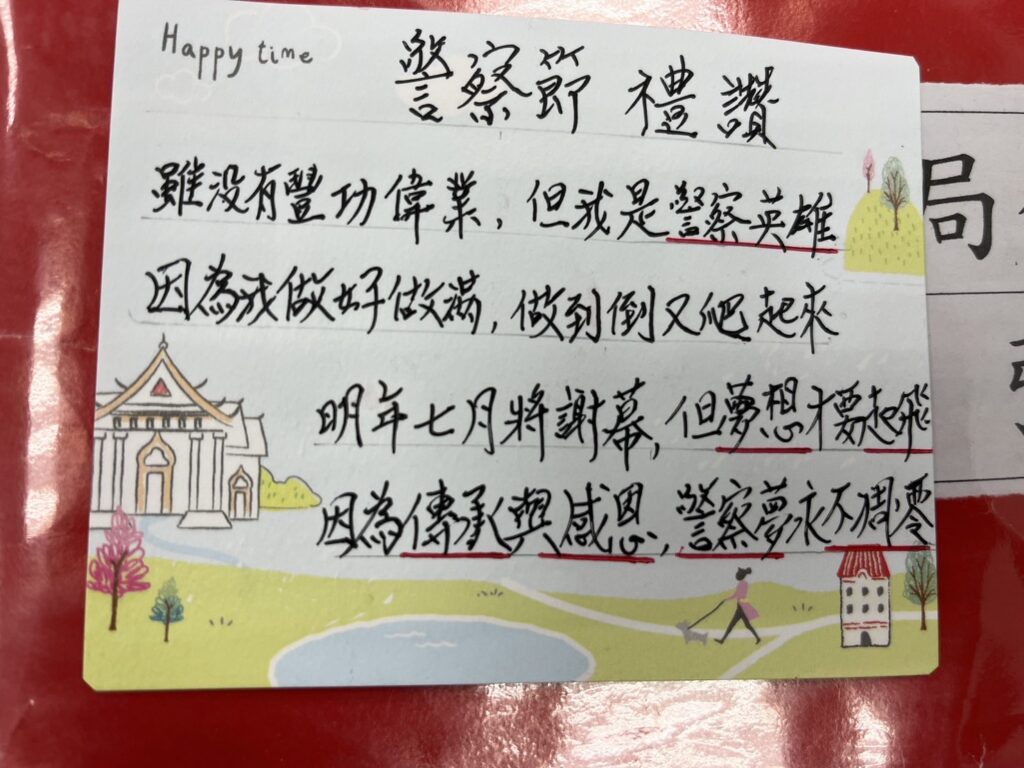 Happy time
警察節 禮讚
雖没有豐功偉業，但我是警察英雄
因為我做好做滿，做到倒又爬起來
明年七月將謝幕，但夢想才要起飛
因為傳承與感恩，警察夢永不凋零
局